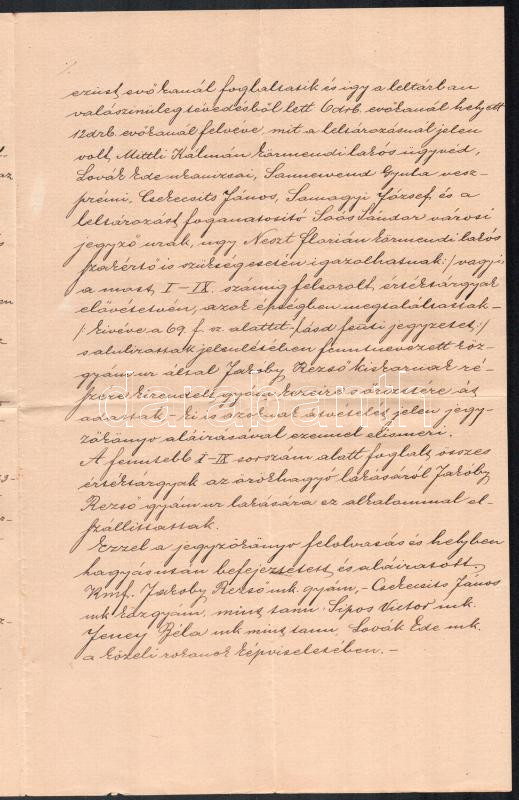 ezüst evőkanál foglaltatik és igy a leltárban
valószinüleg tévedésből lett 6 drb. evőkanál helyett
12 drb. evőkanál felvéve, mit a leltározásnál jelen
volt, Mittli Kálmán körmendi lakós ügyvéd,
Lovák Ede Gyula vesz-
prémi, Cserecsits János, Somagyi József, és a
leltározást foganatositó Soós Sándor városi
jegyző urak, ugy Neszt Florián körmendi lakós
szakértő is szükség esetén igazolhatnak :/ vagyis
a most I-IX. számig felsorolt értéktárgyak
elővétetvén, azok épségben megtaláltattak -
/: kivéve a 69. f. sz. alattit - lásd fenti jegyzetet :/
s alulirottak jelenlétében fentnevezett köz-
gyám ur által Jakóby Rezső kiskorunak ré-
szére kirendelt gyám kezeire s őrizetére át
adattak, - ki is azoknak átvételét jelen jegy-
zőkönyv aláirásával ezennel elismeri.
A fenntebb I-IX sorszám alatt foglalt összes
értéktárgyak az örökhagyó lakásáról Jakóby
Rezső gyám ur lakására ez alkalommal el-
szállittattak.
Ezzel a jegyzőkönyv felolvasás és helyben
hagyás után befejeztetett és aláiratott
Kmf. Jakóby Rezső mk. gyám, - Cserecsits János
mk közgyám, mint tanu: Sipos Victor mk.
Jeney Béla mk mint tanu Lovák Ede mk.
a közeli rokonok képviseletében. -
darabanth